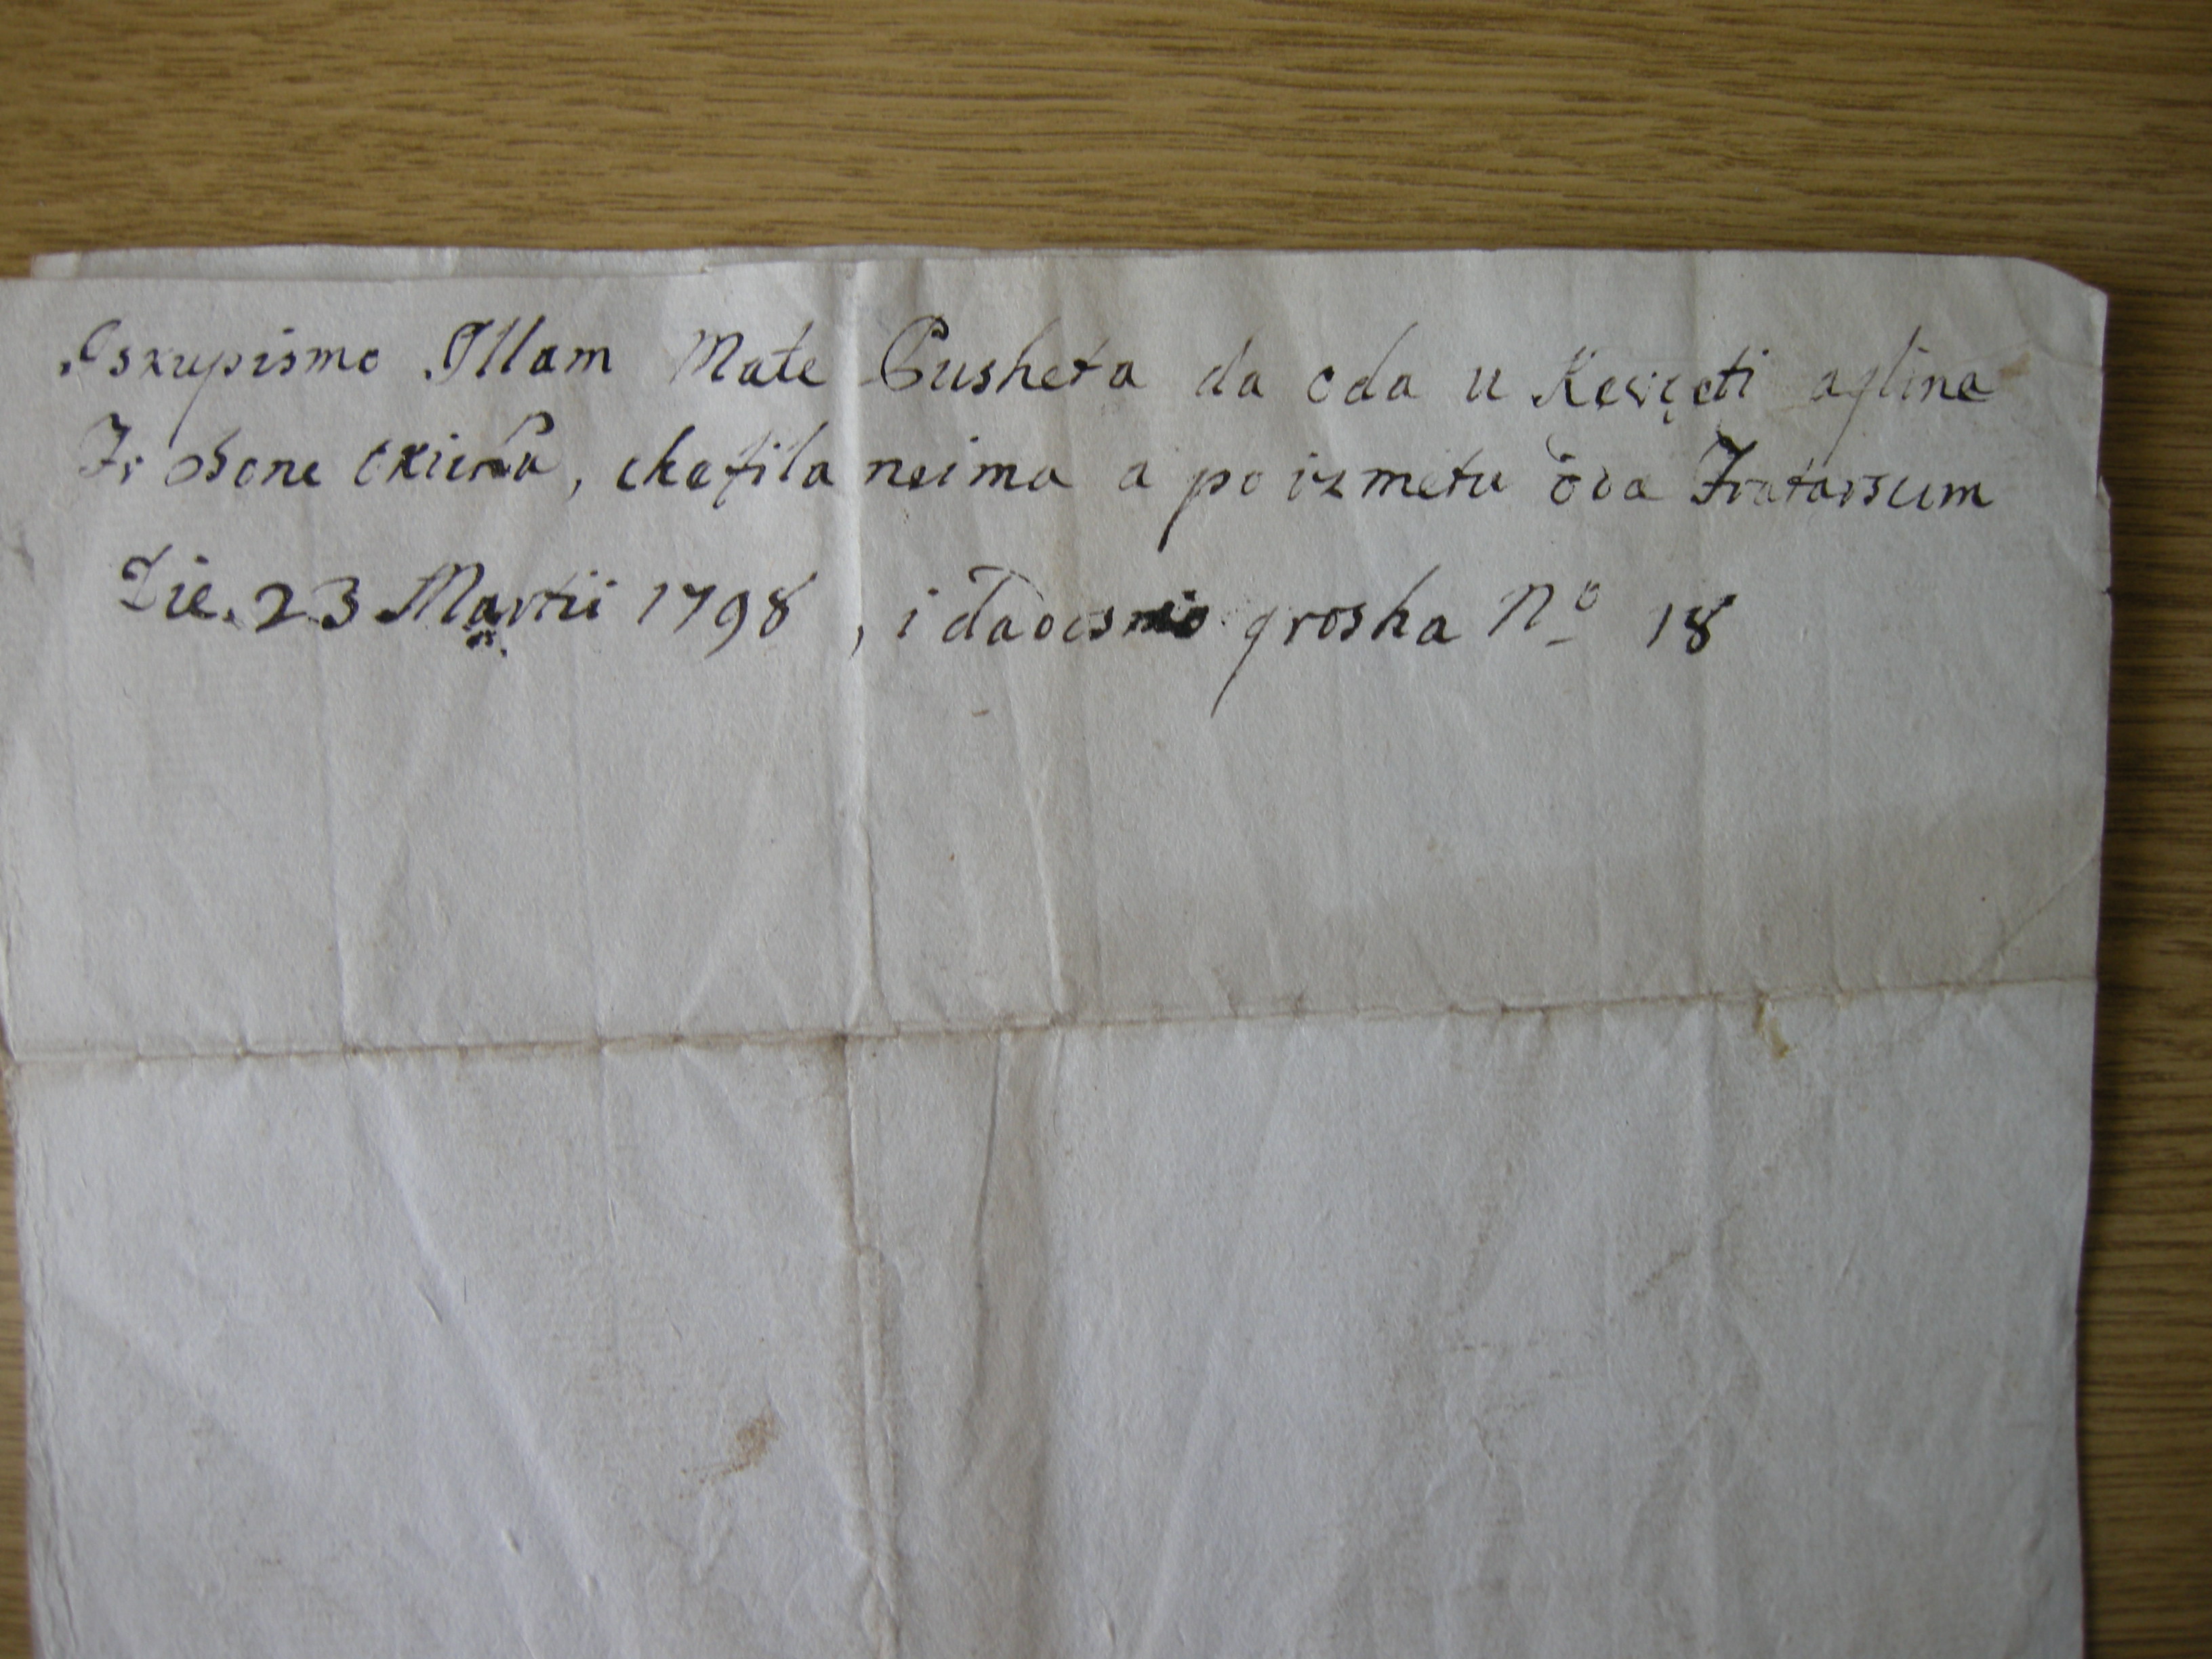 Oskupismo Illam Mate Pusheta da oda u Kesreti agline
Fr Bone, chefila neima a po izmetu ova Fratarsum
Die. 23 Martii 1798, i dadosmo grosha No 18